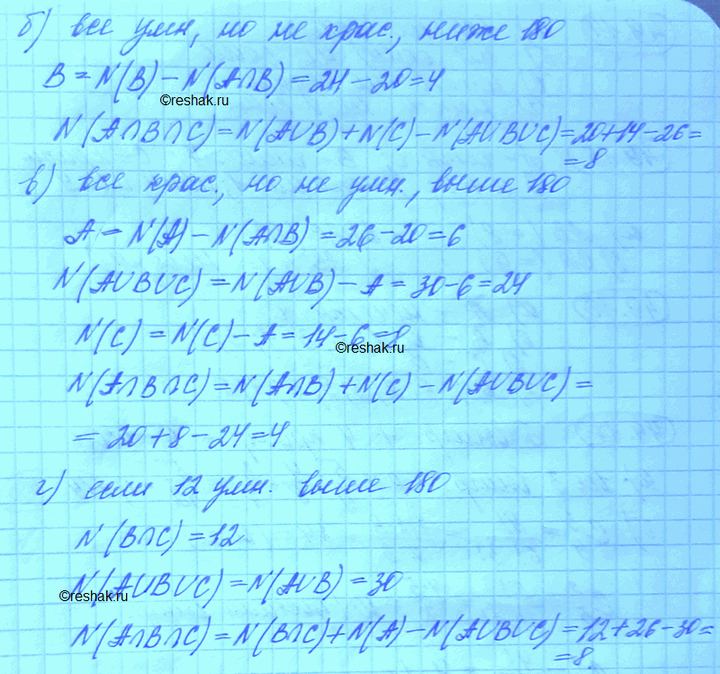 б) все умн, но не крас., ниже 180
B = N(B) - N(A∩B) = 24 - 20 = 4
©reshak.ru
N(A∩B∩C) = N(A∪B) + N(C) - N(A∪B∪C) = 20 + 14 - 26 =
= 8
в) все крас., но не умн., выше 180
A = N(A) - N(A∩B) = 26 - 20 = 6
N(A∪B∪C) = N(A∪B) - A = 30 - 6 = 24
N(C) = N(C) - A = 14 - 6 = 8
©reshak.ru
N(A∩B∩C) = N(A∩B) + N(C) - N(A∪B∪C) =
= 20 + 8 - 24 = 4
г) если 12 умн. выше 180
N(B∩C) = 12
N(A∪B∪C) = N(A∪B) = 30
©reshak.ru
N(A∩B∩C) = N(B∩C) + N(A) - N(A∪B∪C) = 12 + 26 - 30 =
= 8.